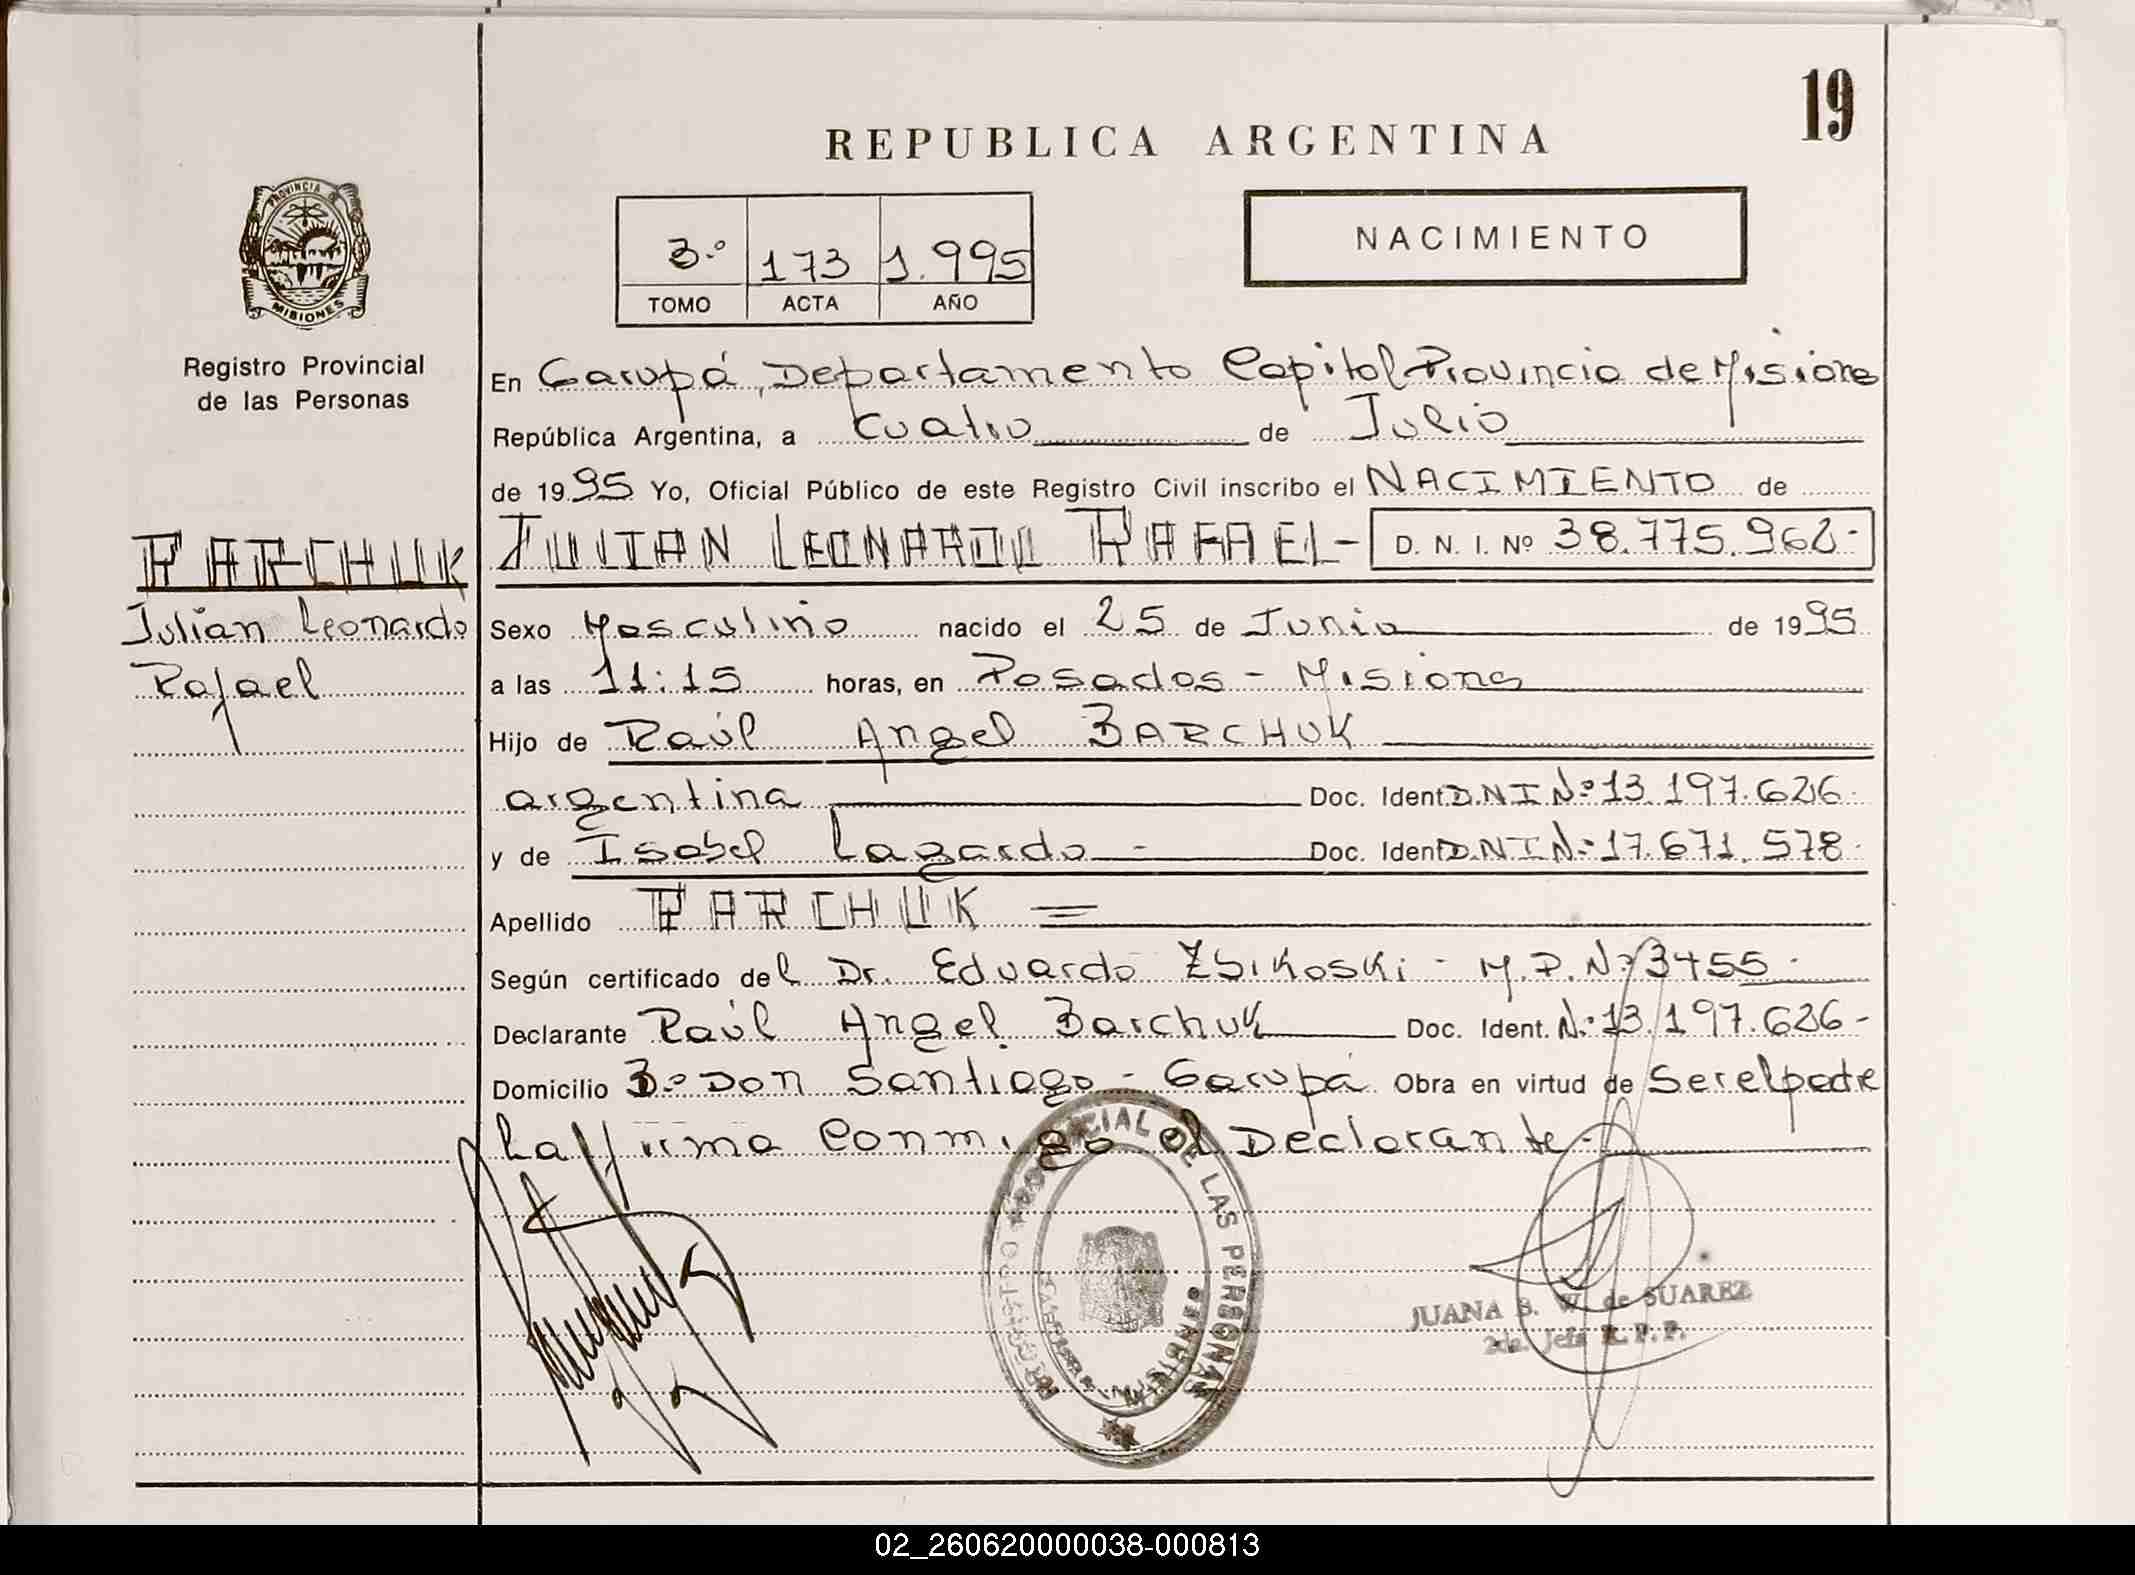 19
REPUBLICA ARGENTINA
PROVINCIA
MISIONES
3.º 173 1.995
TOMO ACTA AÑO
NACIMIENTO
Registro Provincial
de las Personas
En Garupá, Departamento Capital Provincia de Misiones
República Argentina, a cuatro de Julio
de 1995 Yo, Oficial Público de este Registro Civil inscribo el NACIMIENTO de
BARCHUK
Julian Leonardo
Rafael
JULIAN LEONARDO RAFAEL- D. N. I. Nº 38.775.962-
Sexo Masculino nacido el 25 de Junio de 1995
a las 11:15 horas, en Posadas - Misiones
Hijo de Raúl Angel BARCHUK
argentina Doc. Ident. D.N.I Nº 13.197.626.
y de Isabel Lagardo - Doc. Ident. D.N.I Nº 17.671.578.
Apellido BARCHUK =
Según certificado del Dr. Eduardo Zbikoski - M.P.Nº 3455-
Declarante Raúl Angel Barchuk Doc. Ident. Nº 13.197.626-
Domicilio Bº Don Santiago - Garupá Obra en virtud de Ser el padre
La firma conmigo el Declarante-
REGISTRO PROVINCIAL DE LAS PERSONAS
JUANA S. W. de SUAREZ
2da. Jefa R. P. P.
02_260620000038-000813